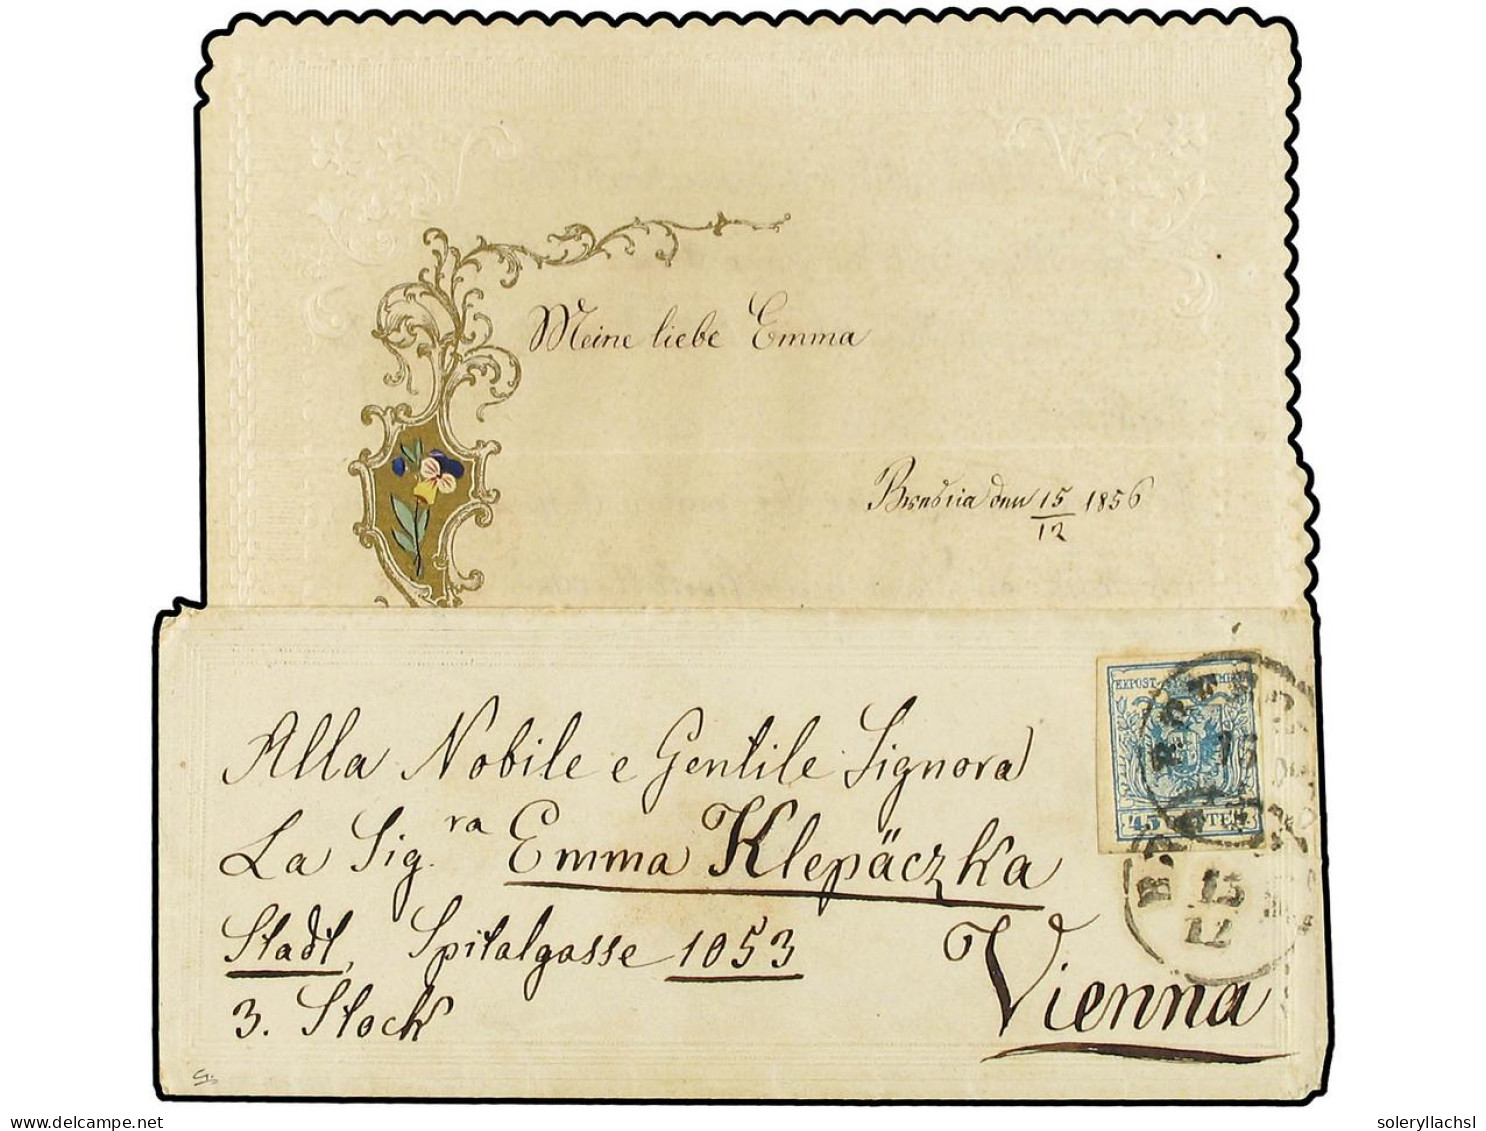 Meine liebe Emma
Brescia den 15/12 1856
Alla Nobile e Gentile Signora
La Sig.ra Emma Klepäczka
Stadt, Spitalgasse 1053
3. Stock
Vienna
KKPOST-STEMPEL
45 CENTES
15
15
12
soleryllachsl